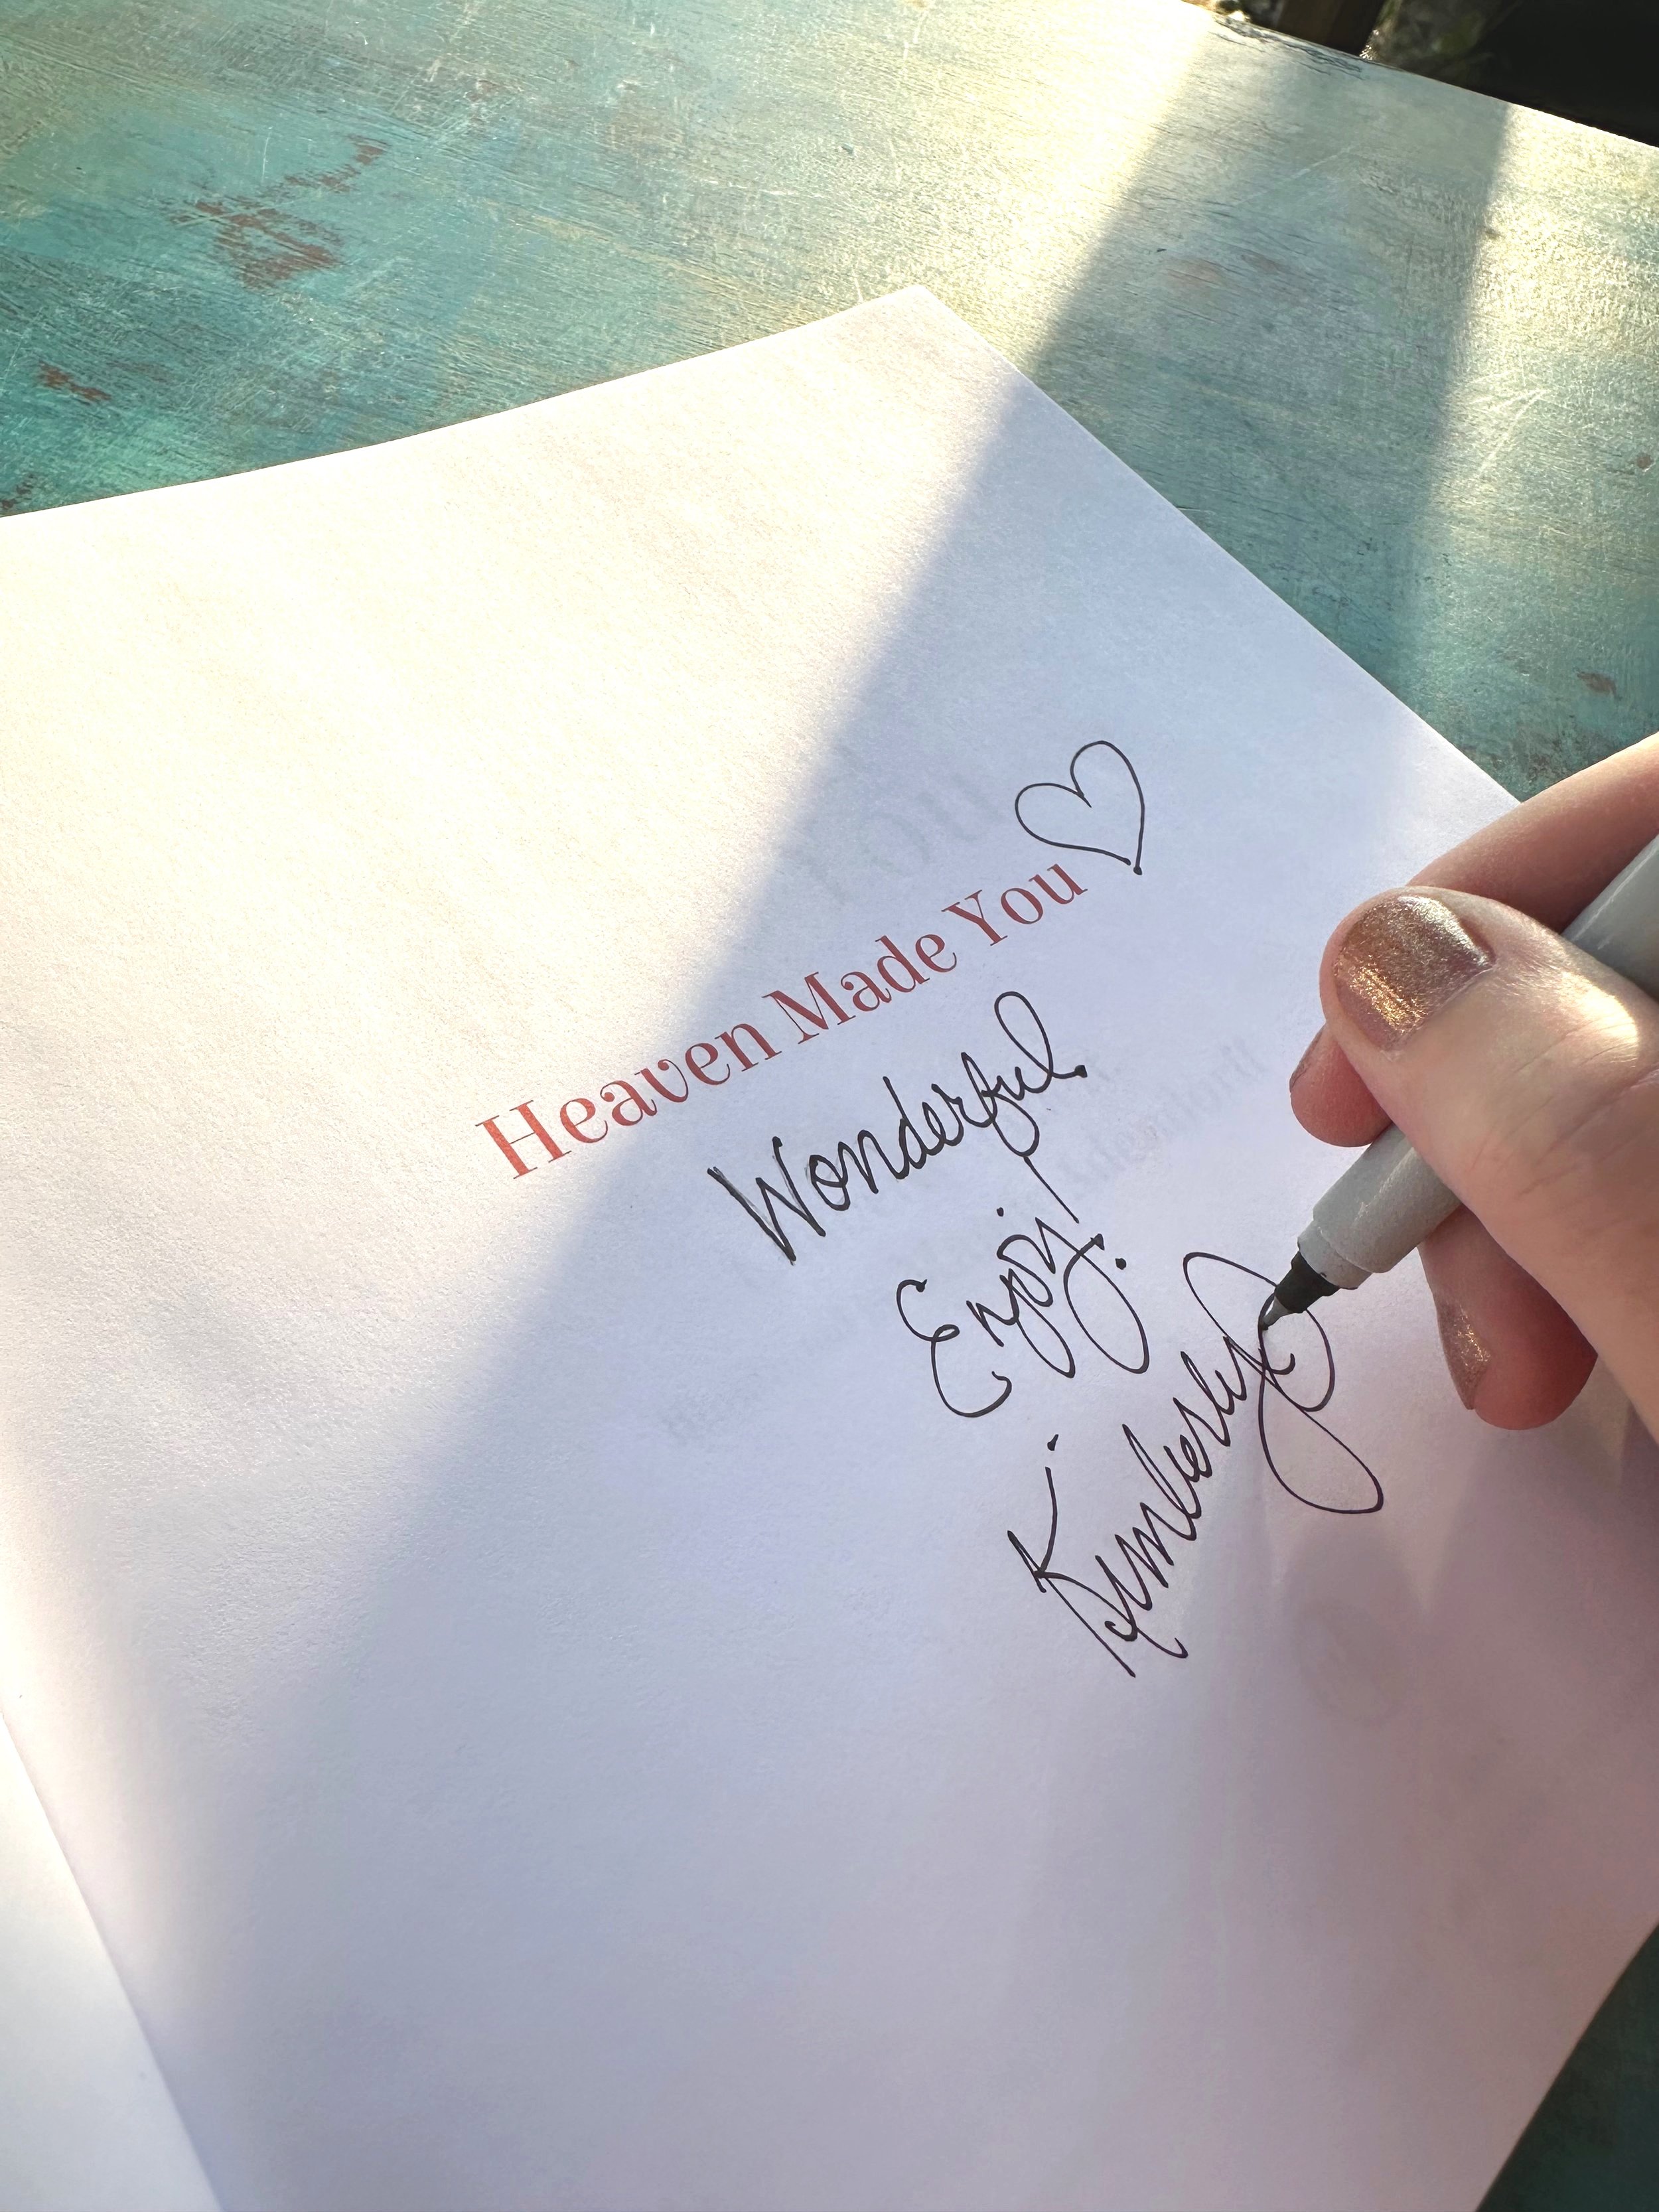 Heaven Made You
Wonderful.
Enjoy!
Kimberly